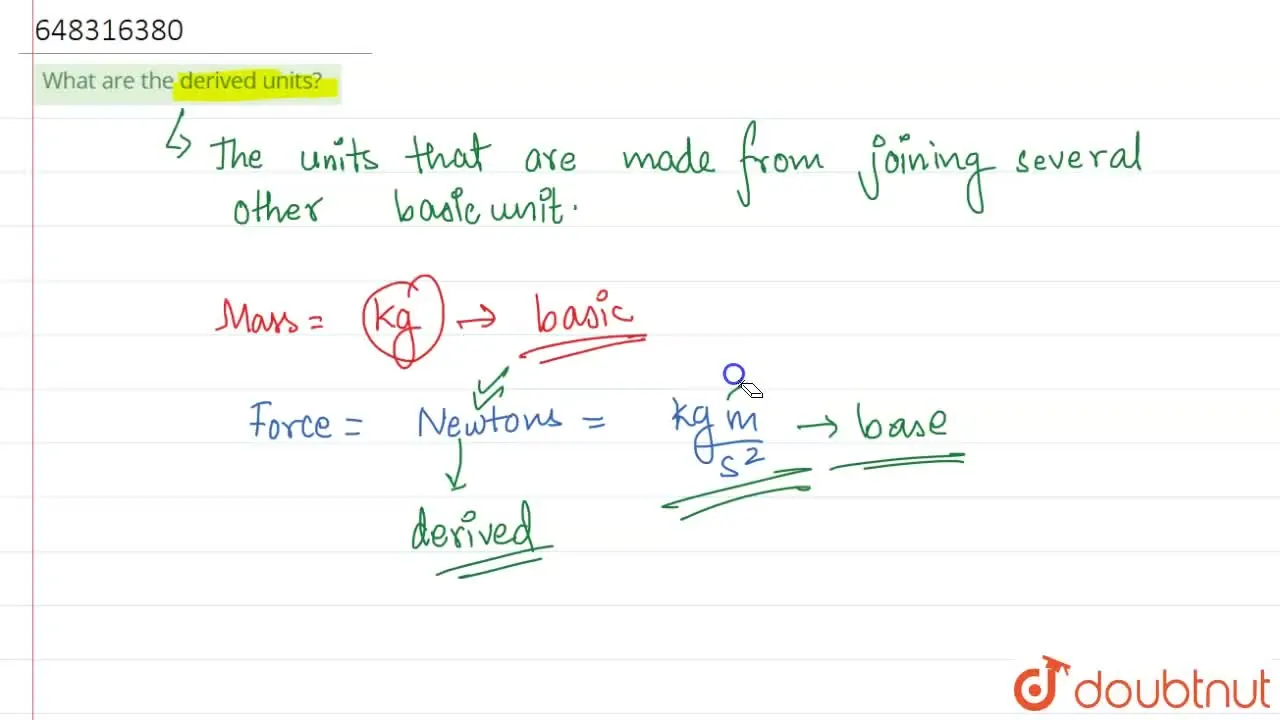 648316380
What are the derived units?
The units that are made from joining several
other basic unit.
Mass = kg → basic
Force = Newtons = kg m / s² → base
derived
doubtnut